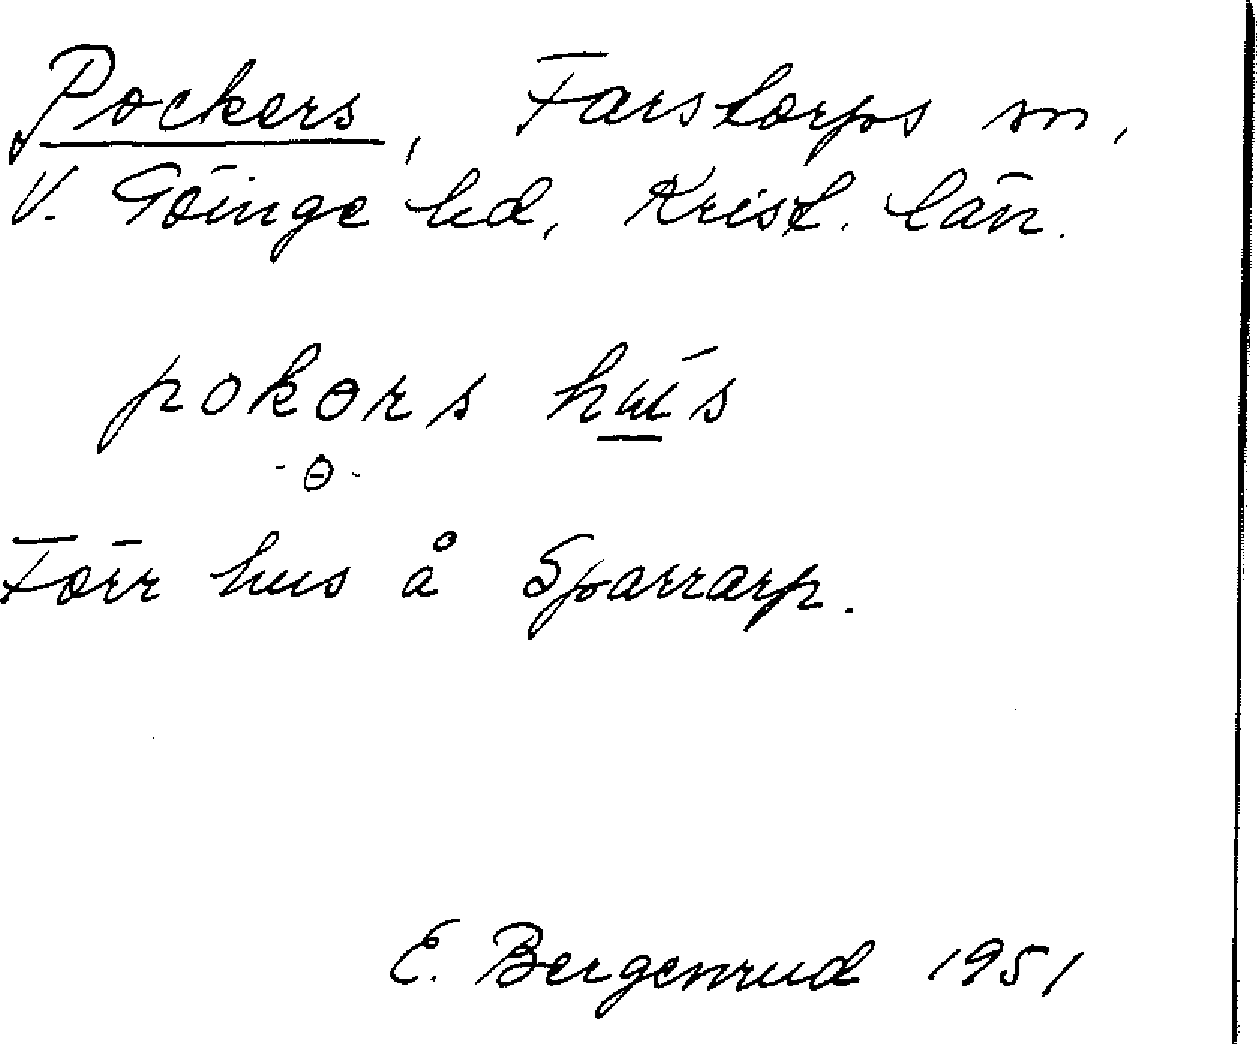 Pockers, Farstorps sn,
V. Göinge hd, Krist. län.
pokɵrs hu̲´s
-ɵ-
Förr hus å Sparrarp.
E. Bergenrud 1951